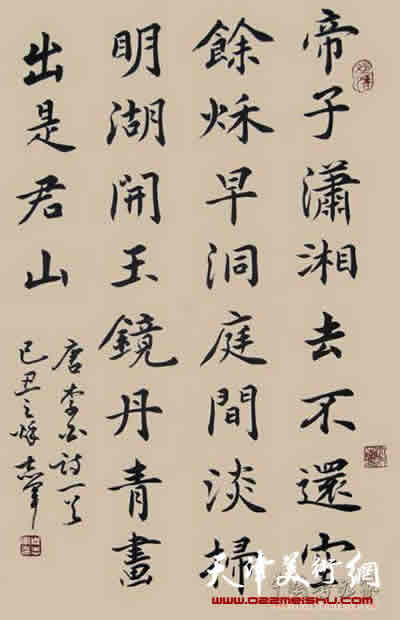 帝子瀟湘去不還空
餘秋早洞庭間淡掃
明湖開玉鏡丹青畫
出是君山
唐李白詩一首
己丑之秋
天津美術網
www.022meishu.com